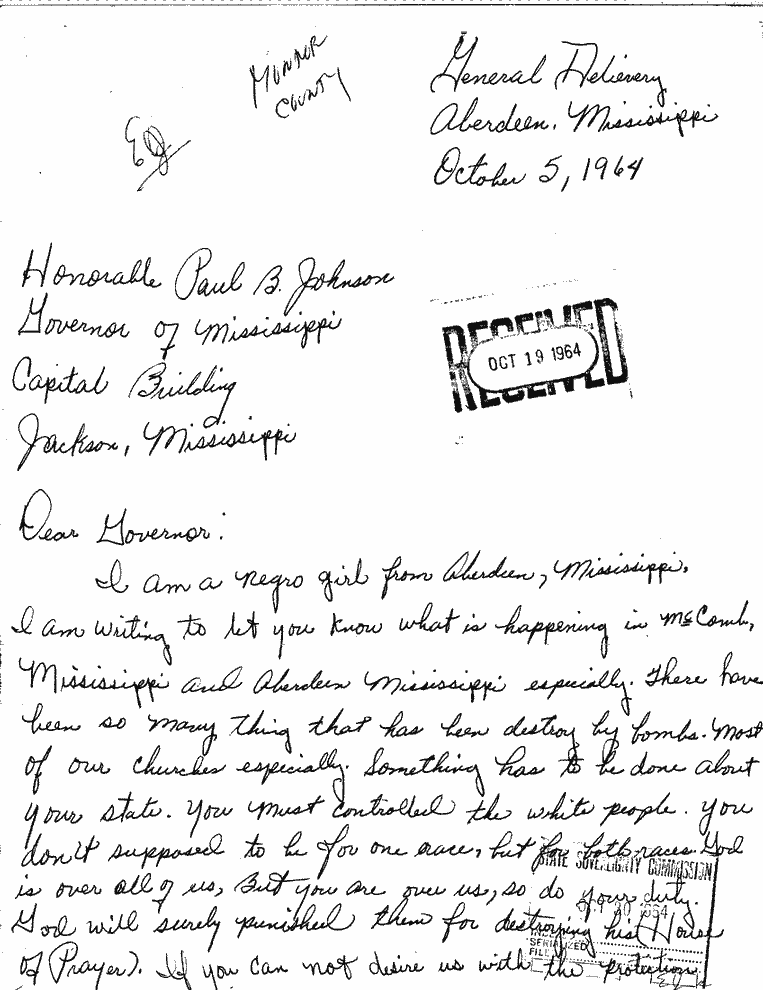 Monroe
County
General Delievery
Aberdeen, Mississippi
October 5, 1964
Honorable Paul B. Johnson
Governor of Mississippi
Capital Building
Jackson, Mississippi
RECEIVED
OCT 19 1964
Dear Governor:
I am a negro girl from Aberdeen, Mississippi.
I am writing to let you know what is happening in McComb,
Mississippi and Aberdeen Mississippi especially. There have
been so many thing that has been destroy by bombs. Most
of our churches especially. Something has to be done about
your state. You must controlled the white people. You
don't supposed to be for one race, but for both races. God
STATE SOVEREIGNTY COMMISSION
is over all of us, But you are over us, so do your duty.
God will surely punished them for destroying his (House
SERIALIZED
FILE
of Prayer). If you can not desire us with the protection